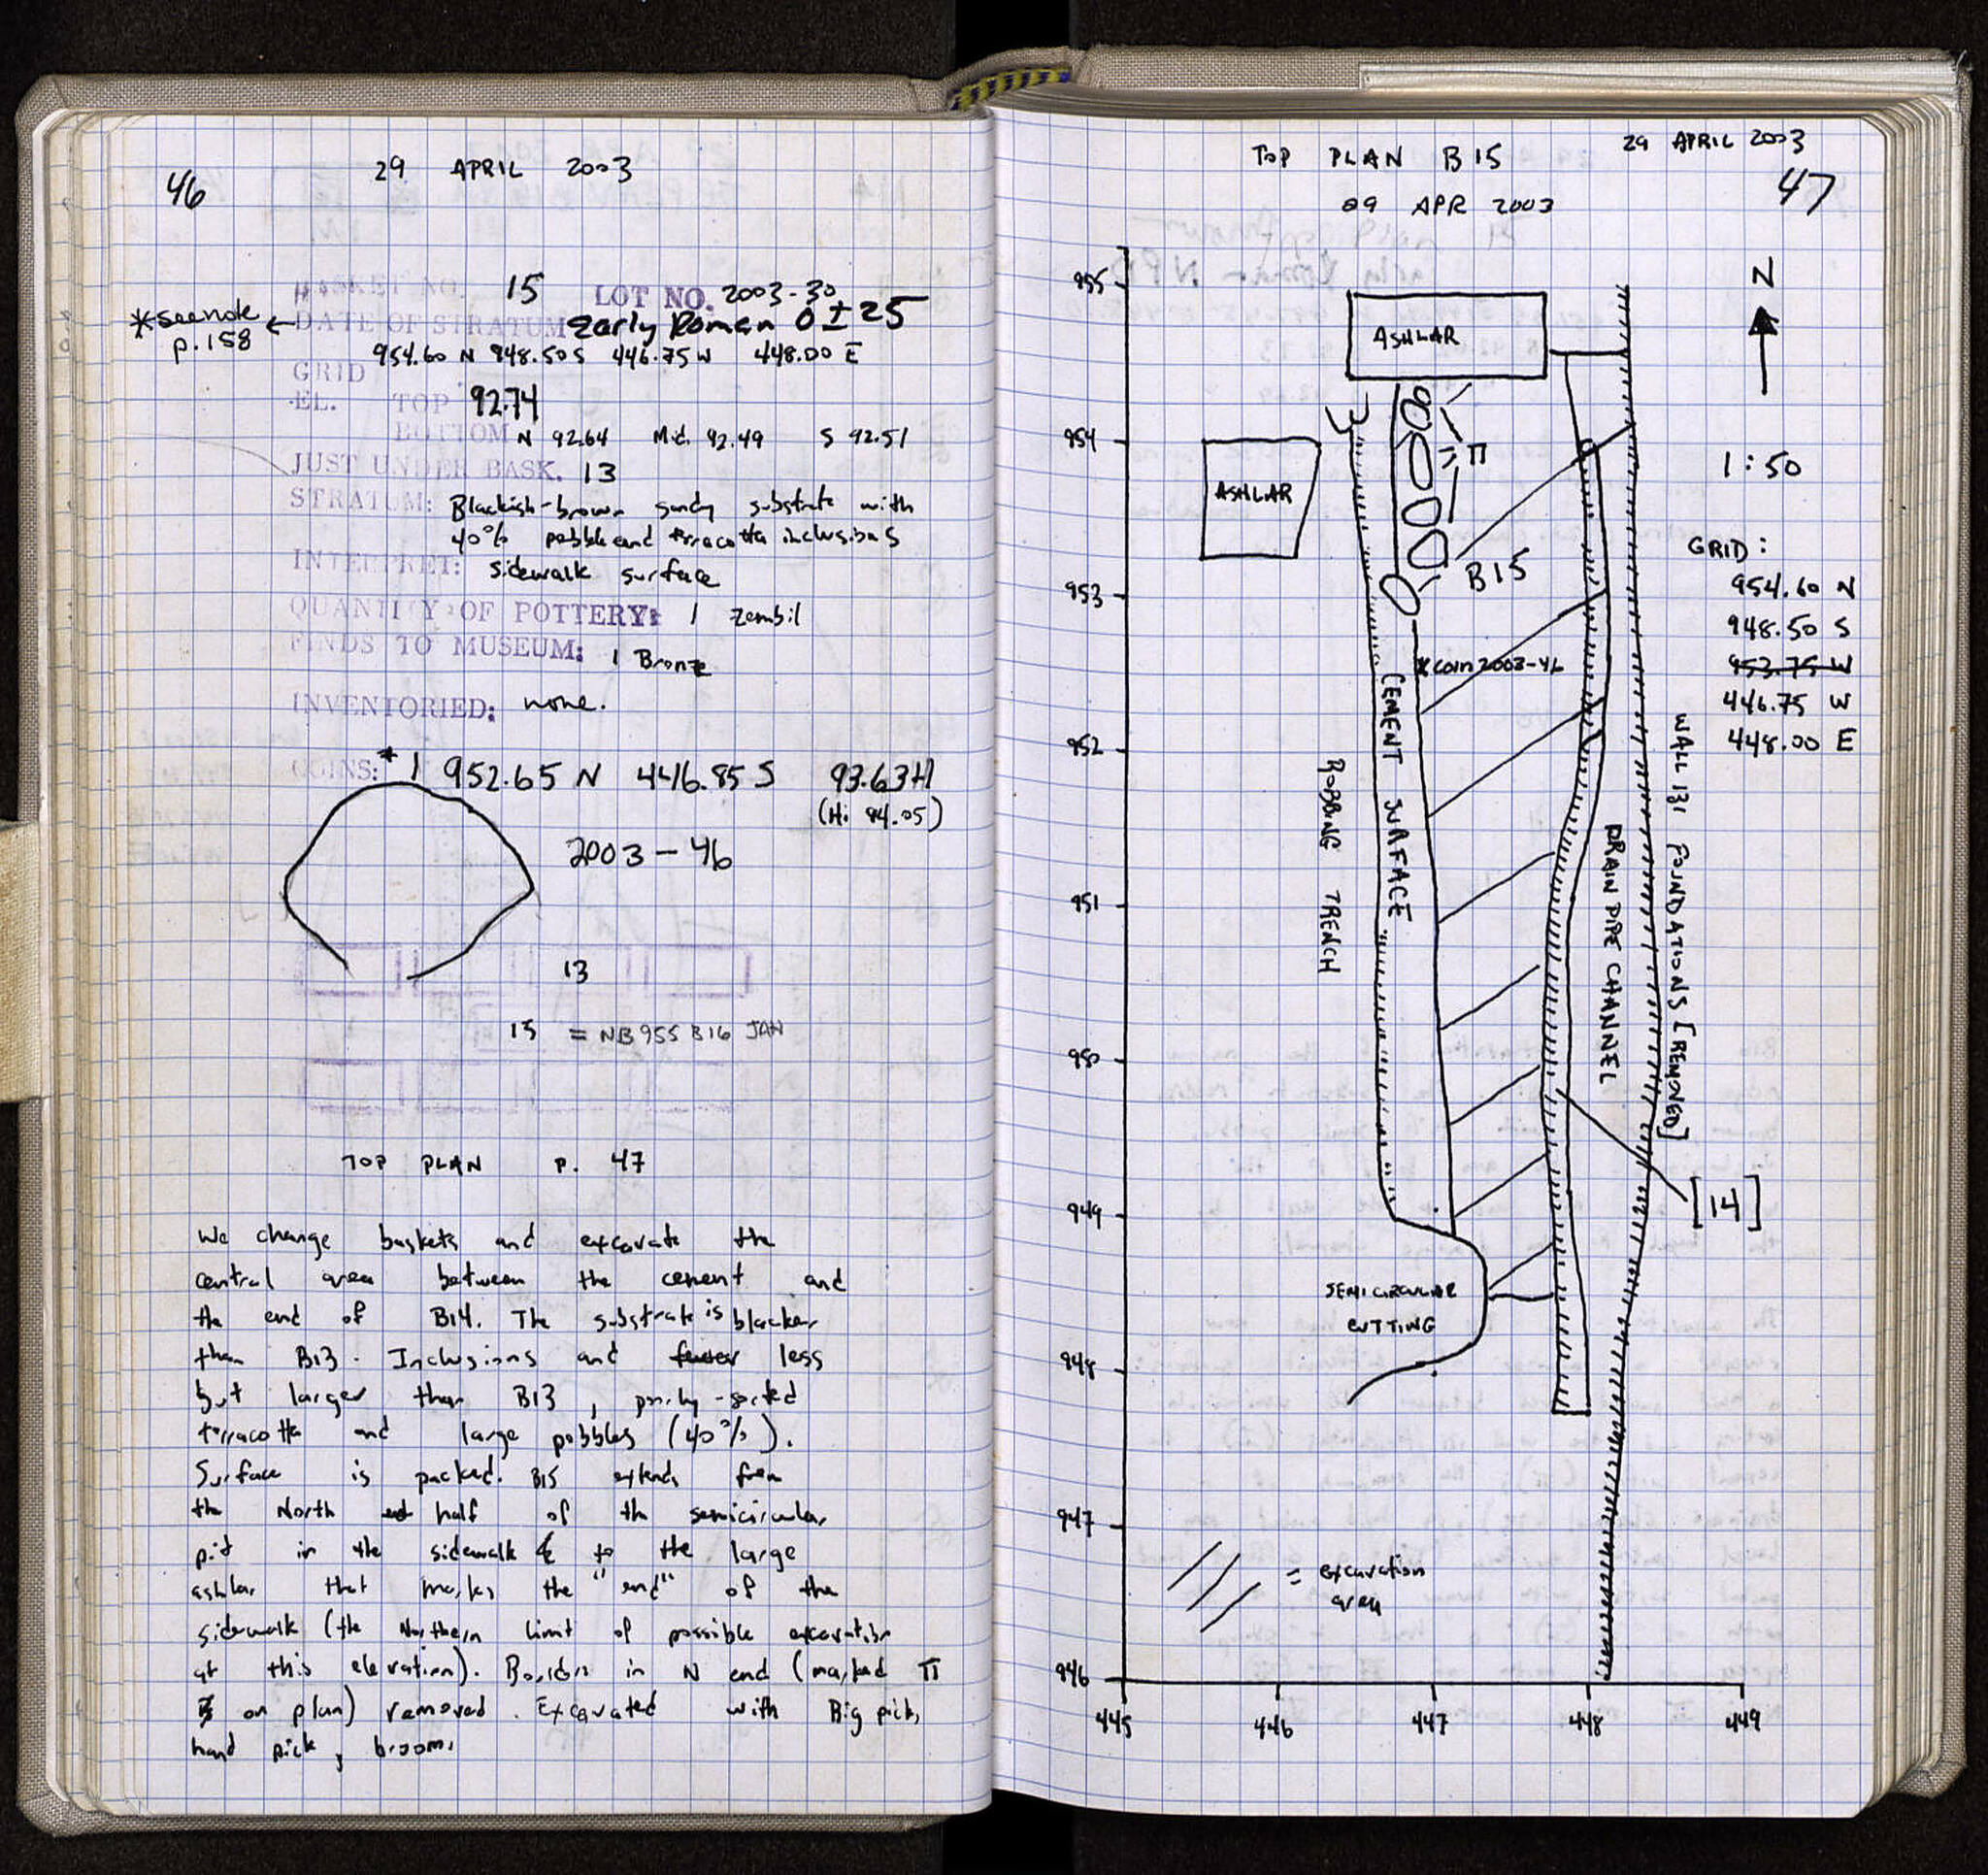 46
29 APRIL 2003
BASKET NO. 15 LOT NO. 2003-30
*see note p.158
DATE OF STRATUM Early Roman 0±25
954.60 N 948.50 S 446.75 W 448.00 E
GRID
EL. TOP 92.74
BOTTOM N 92.64 Mid. 92.49 S 92.51
JUST UNDER BASK. 13
STRATUM: Blackish-brown sandy substrate with
40% pebble and terracotta inclusions
INTERPRET: sidewalk surface
QUANTITY OF POTTERY: 1 zembil
FINDS TO MUSEUM: 1 Bronze
INVENTORIED: none.
COINS: *1 952.65 N 446.85 S 93.63H1
(Hi 94.05)
2003-46
13
15 = NB955 B16 JAN
TOP PLAN P. 47
We change baskets and excavate the
central area between the cement and
the end of B14. The substrate is blacker
than B13. Inclusions and fewer less
but larger than B13, poorly-sorted
terracotta and large pebbles (40%).
Surface is packed. B15 extends from
the North half of the semicircular
pit in the sidewalk to the large
ashlar that marks the "end" of the
sidewalk (the Northern limit of possible excavation
at this elevation). Boulders in N end (marked π
on plan) removed. Excavated with Big pick,
hand pick, broom.
29 APRIL 2003
47
TOP PLAN B15
09 APR 2003
N
1:50
GRID:
954.60 N
948.50 S
953.75 W
446.75 W
448.00 E
955
954
953
952
951
950
949
948
947
946
445
446
447
448
449
ASHLAR
ASHLAR
π
B15
*coin 2003-46
CEMENT SURFACE
ROBBING TRENCH
DRAIN PIPE CHANNEL
WALL 131 FOUNDATIONS [REMOVED]
[14]
SEMICIRCULAR
CUTTING
= excavation
area